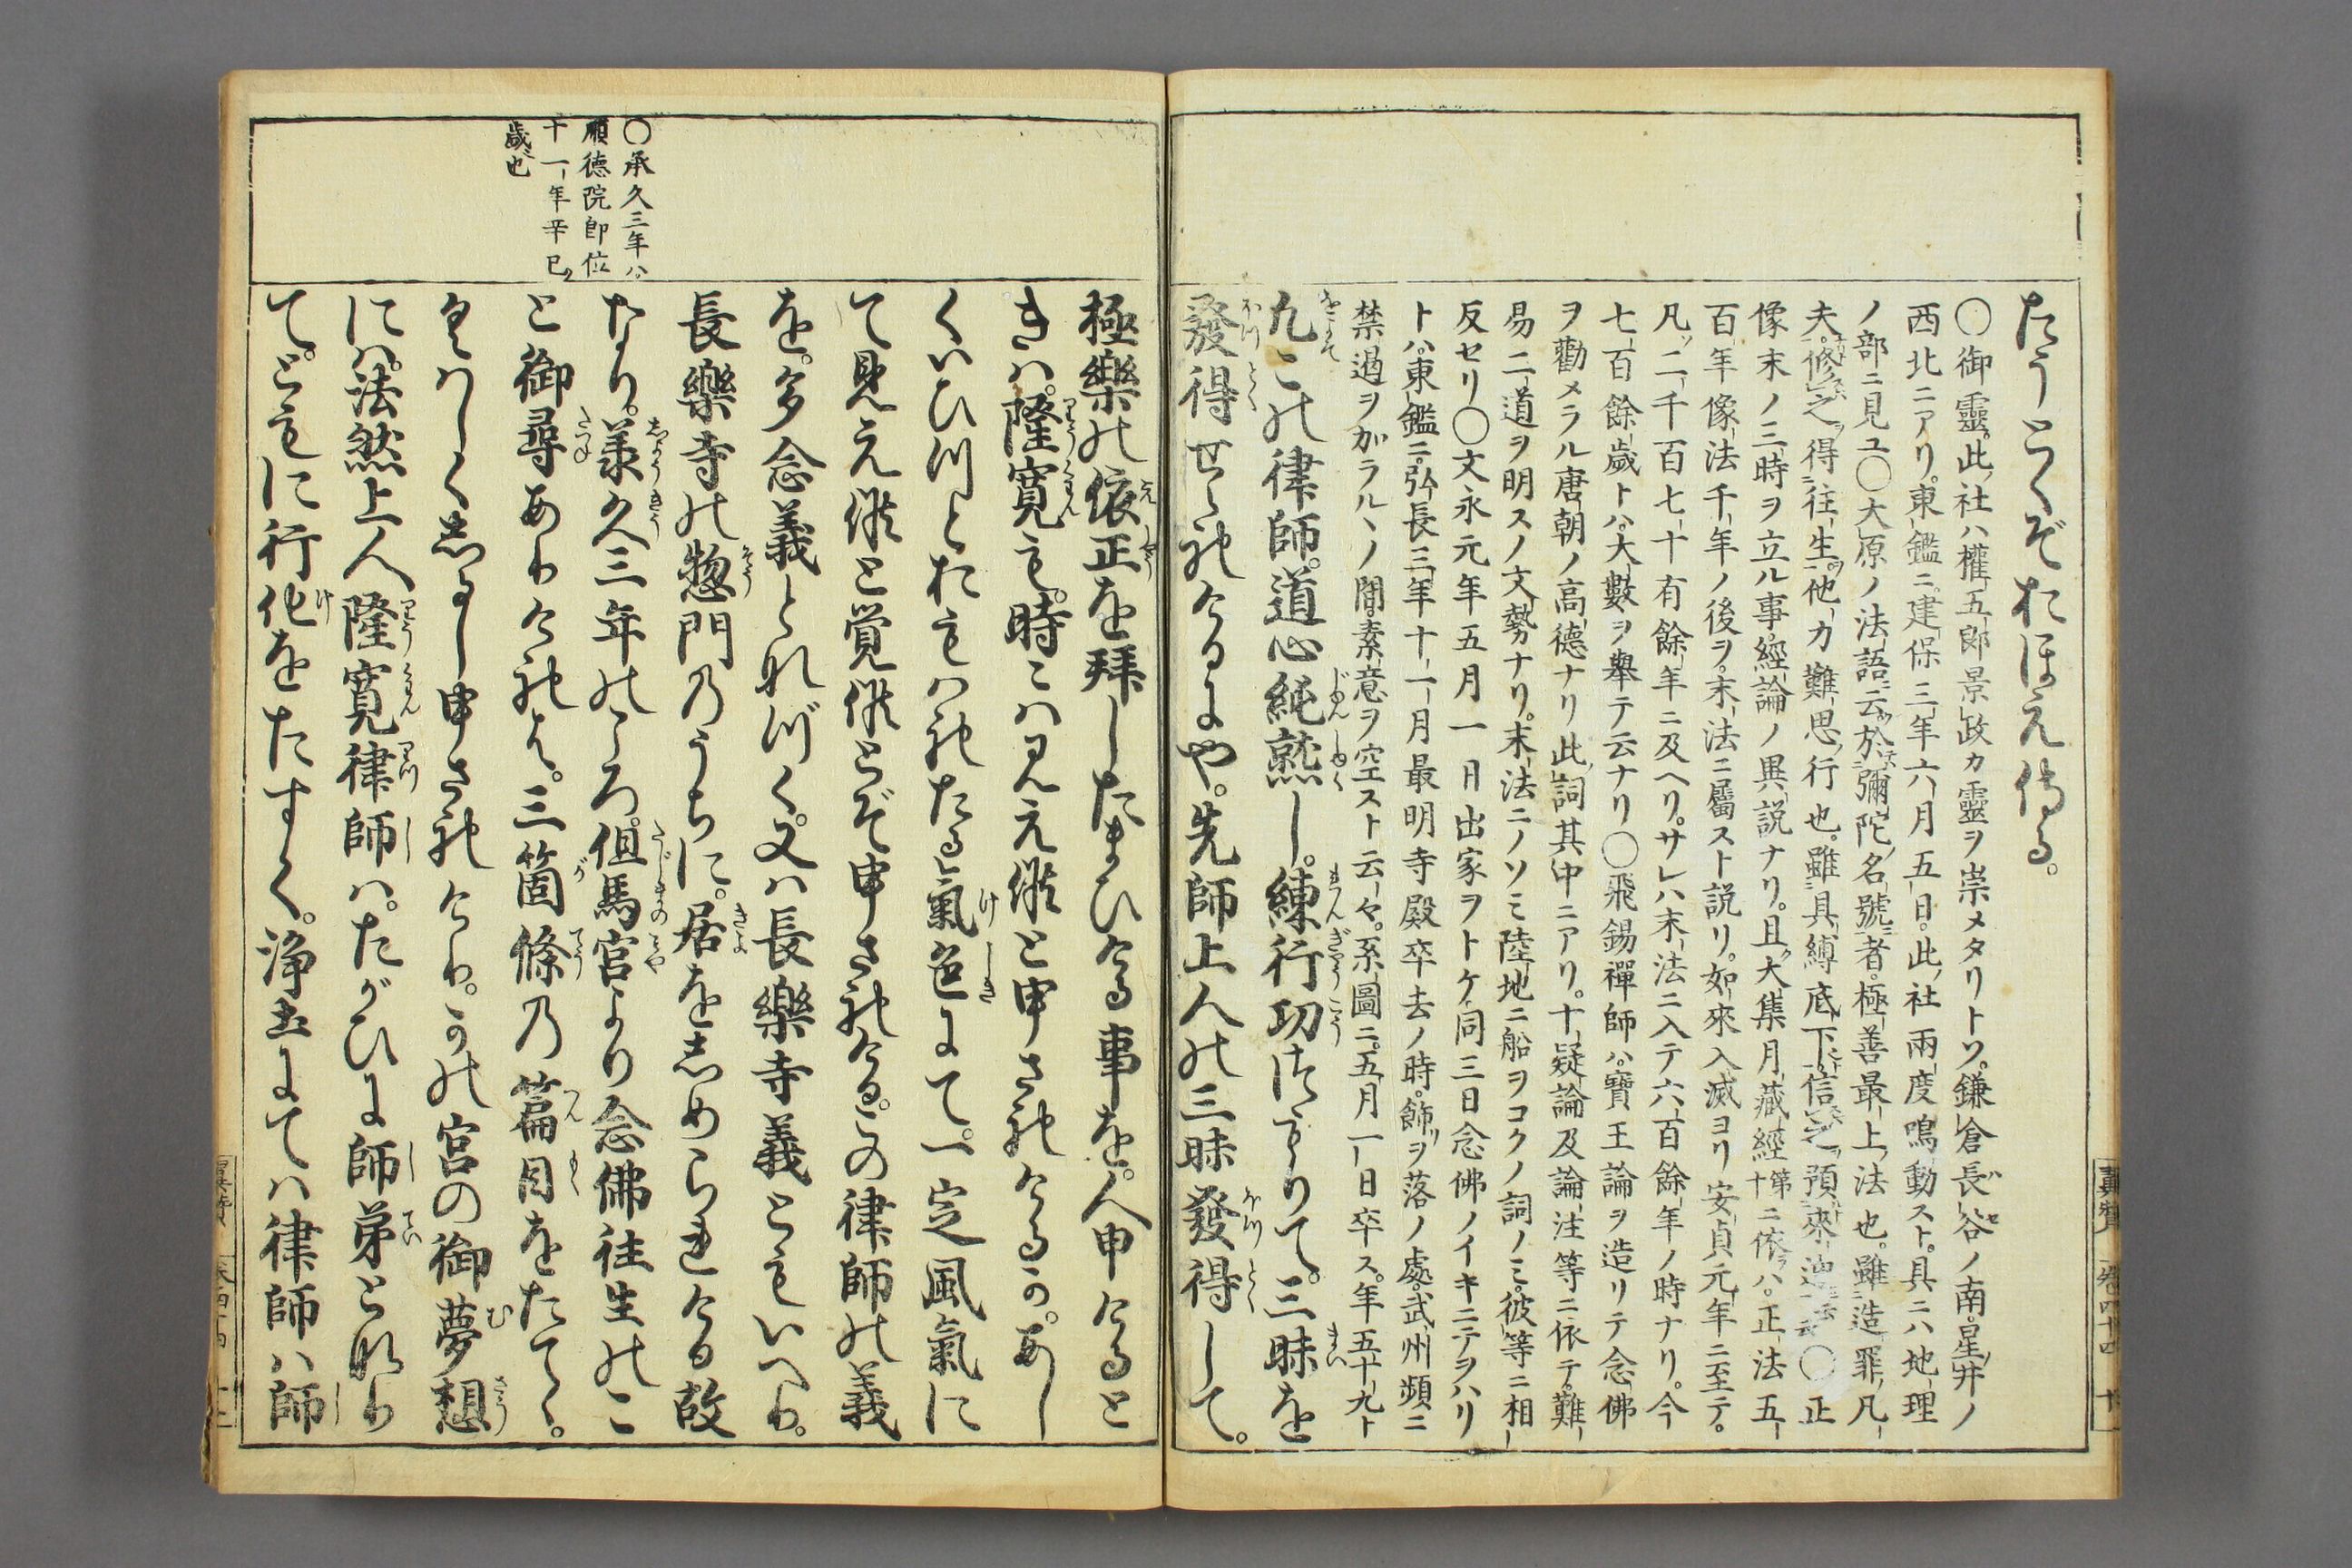 たうとくぞおほえ侍る。
〇御靈。此社ハ權五郎景政カ靈ヲ崇メタリトソ。鎌倉長谷ノ南。星井ノ
西北ニアリ。東鑑ニ。建保三年六月五日。此社兩度鳴動スト。具ニハ地理
ノ部ニ見ユ〇大原ノ法語云。於彌陀名號者。極善最上法也。雖造罪凡
夫。修之得往生。他力難思行也。雖具縛底下。信之預來迎云云〇正
像末ノ三時ヲ立ル事。經論ノ異説ナリ。且大集月藏經第十ニ依ハ。正法五
百年像法千年ノ後ヲ。末法ニ屬スト説リ。如來入滅ヨリ安貞元年ニ至テ。
凡二千百七十有餘年ニ及ヘリ。サレハ末法ニ入テ六百餘年ノ時ナリ。今
七百餘歲トハ大數ヲ舉テ云ナリ〇飛錫禪師ハ。寶王論ヲ造リテ念佛
ヲ勸メラル唐朝ノ高德ナリ此詞其中ニアリ。十疑論及論注等ニ依テ。難
易二道ヲ明スノ文勢ナリ。末法ニノソミ陸地ニ船ヲコクノ詞ノミ。彼等ニ相
反セリ〇文永元年五月一日出家ヲトケ。同三日念佛ノイキニテヲハリ
トハ。東鑑ニ。弘長三年十一月最明寺殿卒去ノ時。飾ヲ落ノ處。武州頻ニ
禁遏ヲ加ラルヽノ間。素意ヲ空スト云々。系圖ニ。五月一日卒ス。年五十九ト
凡この律師。道心純熟し。練行功つもりて。三昧を
發得せられけるにや。先師上人の三昧發得して。
極樂の依正を拜したまひける事を。人申けると
きハ。隆寛も。時々ハみえ候と申されけるか。あし
くいひつとおもハれたる氣色にて。一定風氣に
て見え候と覚候とぞ申されける。この律師の義
を。多念義となづく。又ハ長樂寺義ともいへり。
長樂寺の惣門乃うちに。居をしめられける故
なり。承久三年のころ。但馬宮より念佛往生のこ
と御尋ありけれは。三箇條乃篇目をたてゝ。
くハしくしるし申されけり。かの宮の御夢想
にハ。法然上人隆寛律師ハ。たがひに師弟となり
て。ともに行化をたすく。浄土にてハ律師ハ師
〇承久三年ハ
順德院即位
十一年辛巳ノ
歲也